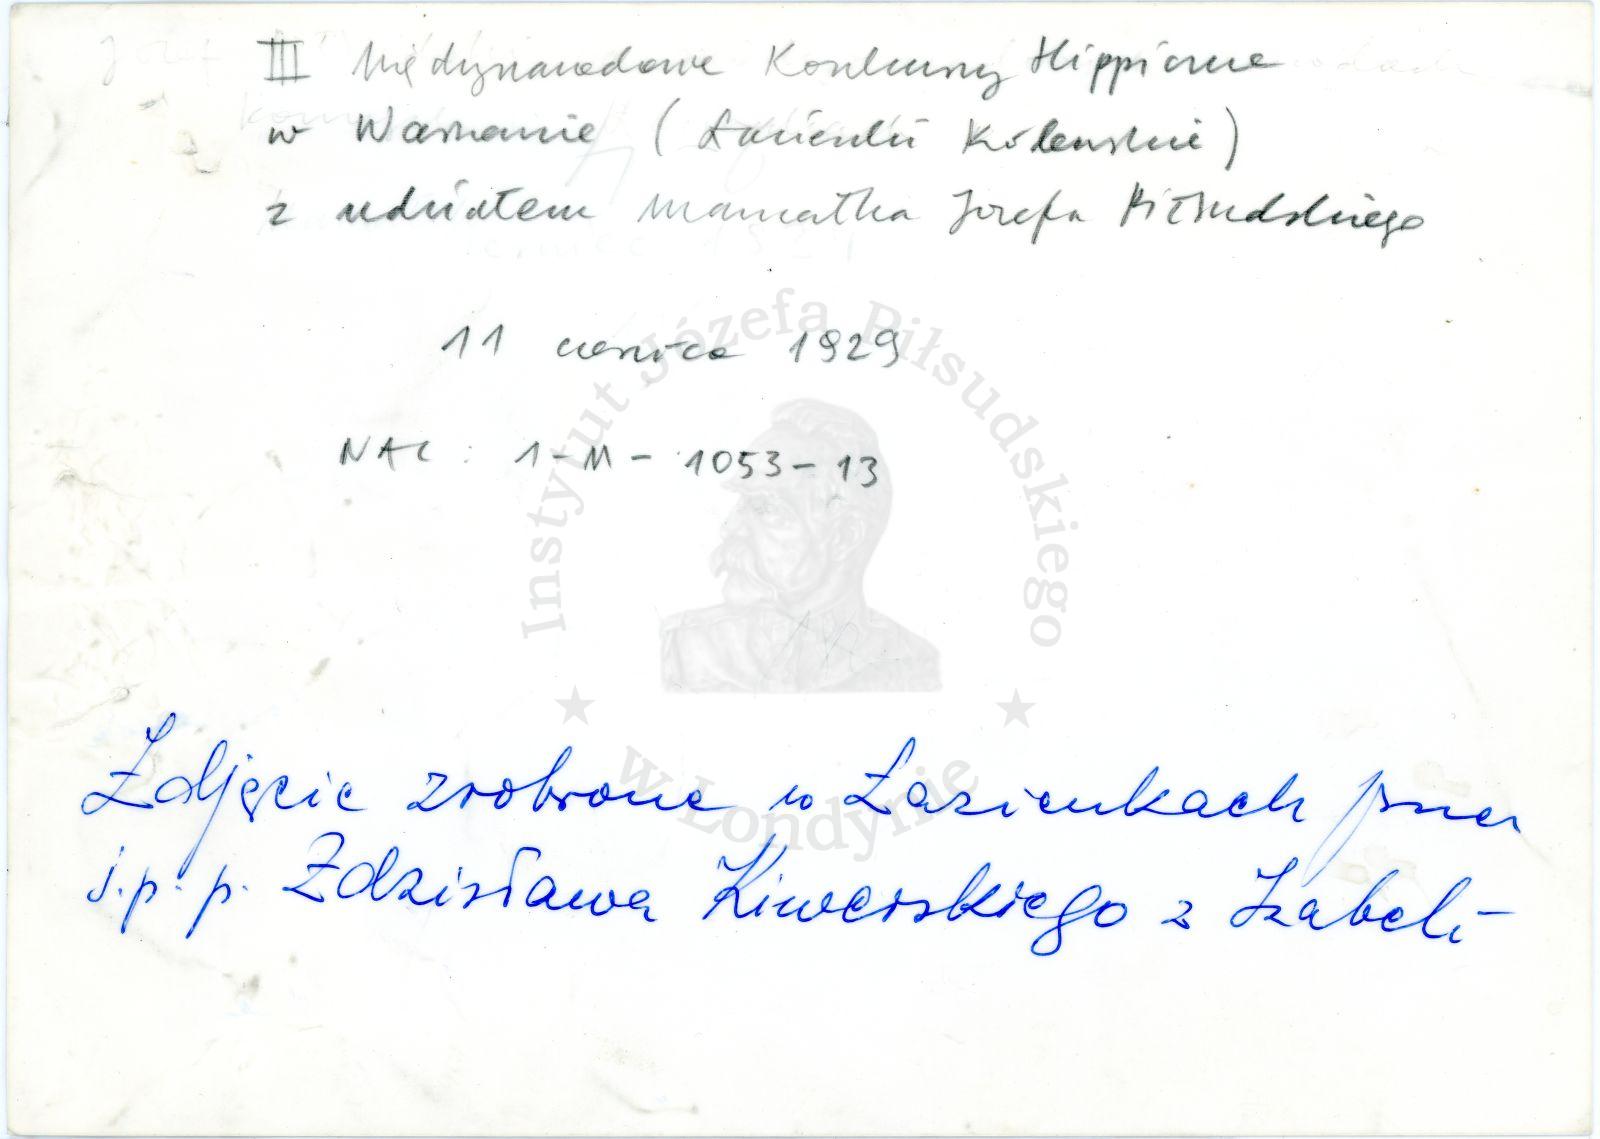 III Międzynarodowe Konkursy Hippiczne
w Warszawie (Łazienki Królewskie)
z udziałem Marszałka Józefa Piłsudskiego
11 czerwca 1929
NAC: 1-M-1053-13
Instytut Józefa Piłsudskiego
w Londynie
Zdjęcie zrobione w Łazienkach przez
ś.p. p. Zdzisława Kiwerskiego z Izabeli-